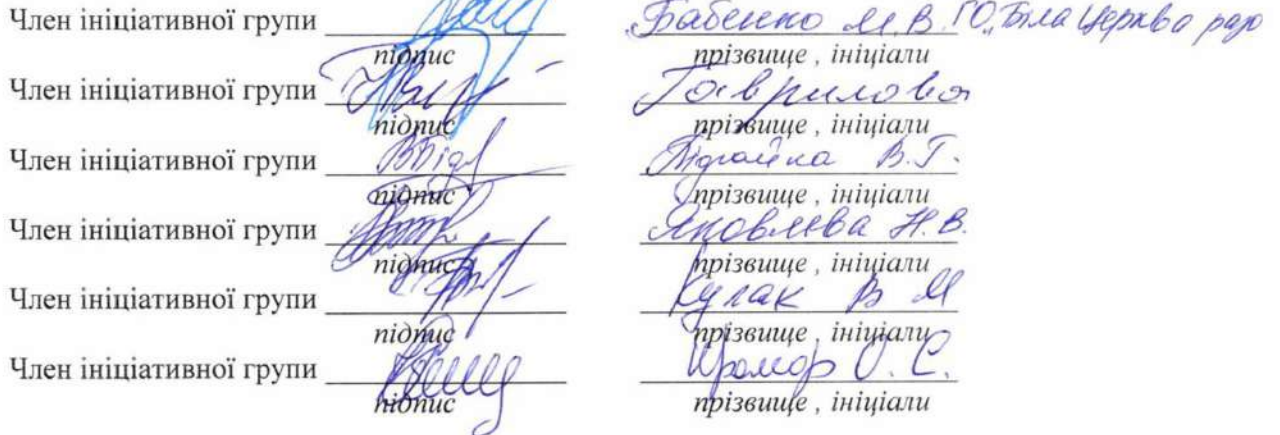 Член ініціативної групи Бабенко М.В. ГО „Біла Церква
підпис прізвище , ініціали
Член ініціативної групи Гаврилова
підпис прізвище , ініціали
Член ініціативної групи В.Г.
підпис прізвище , ініціали
Член ініціативної групи Яковлева Н.В.
підпис прізвище , ініціали
Член ініціативної групи Кулак В М
підпис прізвище , ініціали
Член ініціативної групи О.С.
підпис прізвище , ініціали